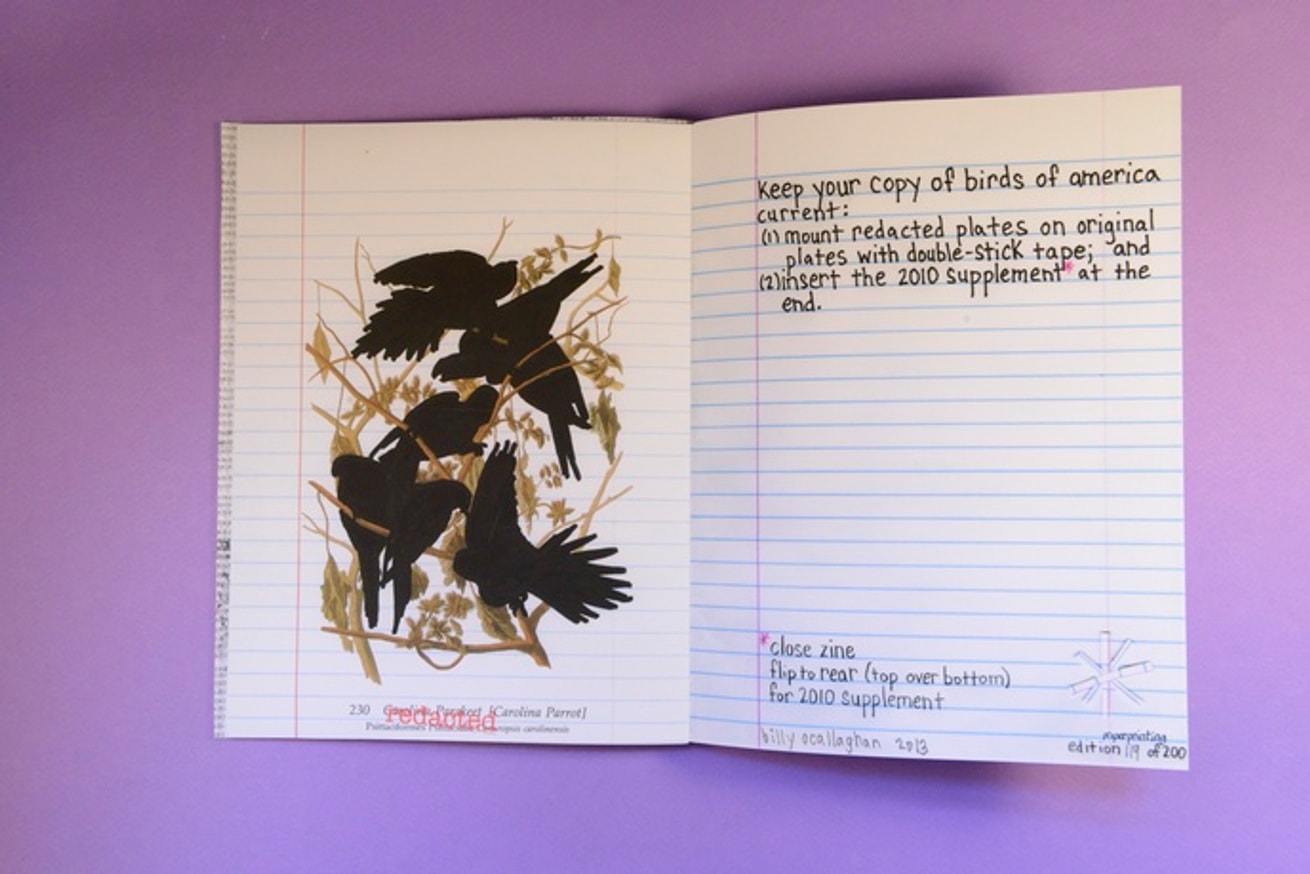 230 Carolina Parakeet [Carolina Parrot]
redacted
carolinensis
Keep your copy of birds of america
current:
(1) mount redacted plates on original
plates with double-stick tape; and
(2) insert the 2010 supplement* at the
end.
*close zine
flip to rear (top over bottom)
for 2010 supplement
billy ocallaghan 2013
edition 119 of 200